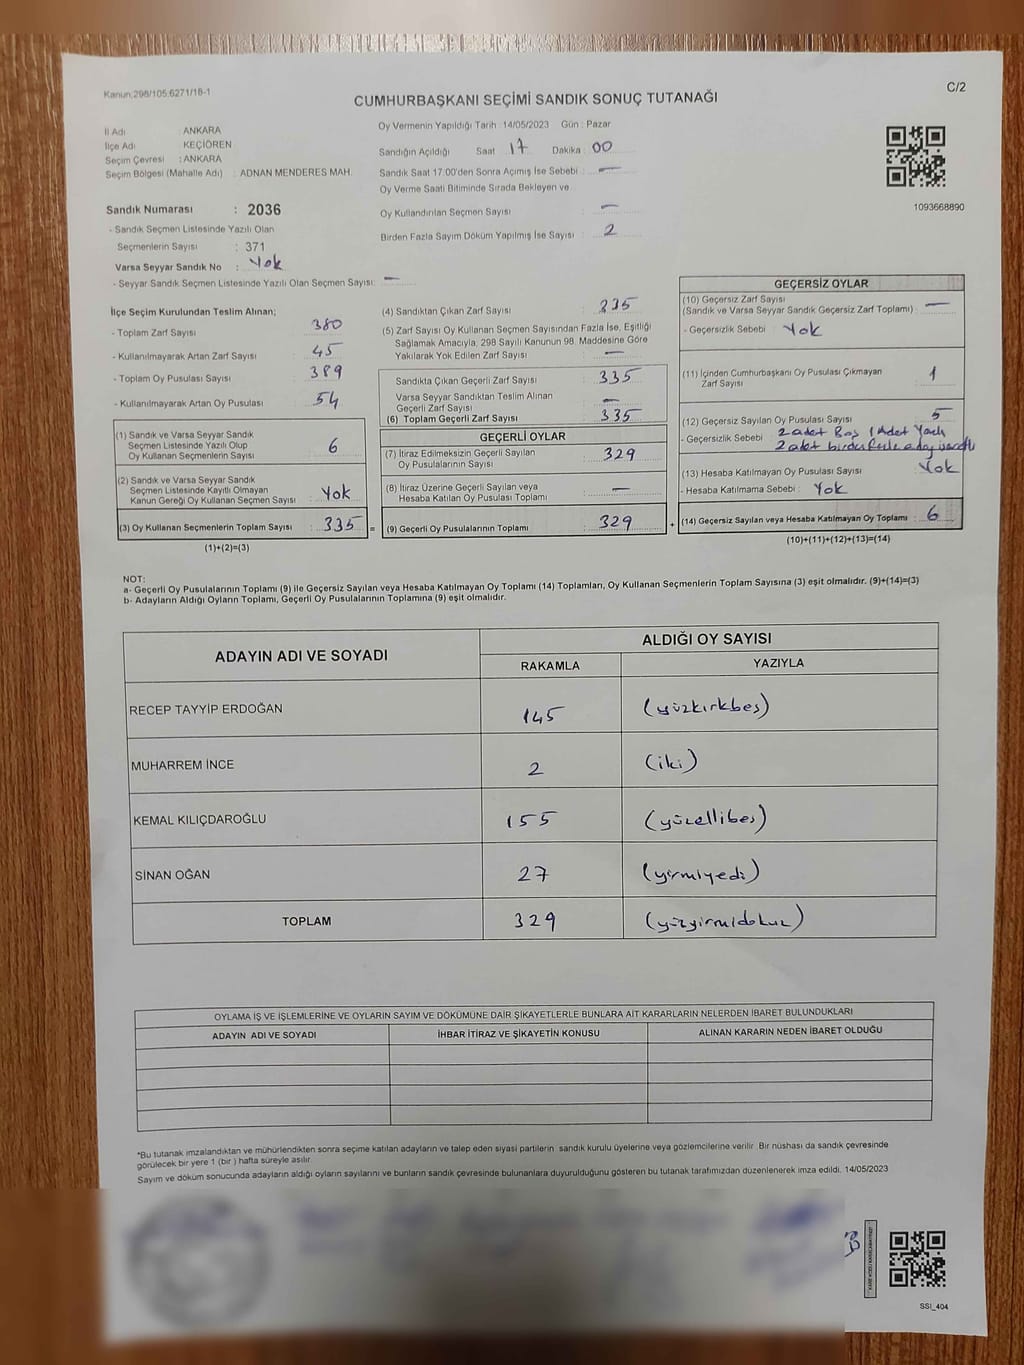 Kanun:298/105;6271/18-1
C/2
CUMHURBAŞKANI SEÇİMİ SANDIK SONUÇ TUTANAĞI
İl Adı : ANKARA
İlçe Adı : KEÇİÖREN
Seçim Çevresi : ANKARA
Seçim Bölgesi (Mahalle Adı) : ADNAN MENDERES MAH.
Sandık Numarası : 2036
- Sandık Seçmen Listesinde Yazılı Olan
Seçmenlerin Sayısı : 371
Varsa Seyyar Sandık No : Yok
- Seyyar Sandık Seçmen Listesinde Yazılı Olan Seçmen Sayısı: —
Oy Vermenin Yapıldığı Tarih : 14/05/2023 Gün : Pazar
Sandığın Açıldığı Saat 17 Dakika : 00
Sandık Saat 17:00'den Sonra Açımış İse Sebebi : —
Oy Verme Saati Bitiminde Sırada Bekleyen ve
Oy Kullandırılan Seçmen Sayısı : —
Birden Fazla Sayım Döküm Yapılmış İse Sayısı : 2
1093668890
İlçe Seçim Kurulundan Teslim Alınan;
- Toplam Zarf Sayısı : 380
- Kullanılmayarak Artan Zarf Sayısı : 45
- Toplam Oy Pusulası Sayısı : 389
- Kullanılmayarak Artan Oy Pusulası : 54
(1) Sandık ve Varsa Seyyar Sandık
Seçmen Listesinde Yazılı Olup
Oy Kullanan Seçmenlerin Sayısı : 6
(2) Sandık ve Varsa Seyyar Sandık
Seçmen Listesinde Kayıtlı Olmayan
Kanun Gereği Oy Kullanan Seçmen Sayısı : Yok
(3) Oy Kullanan Seçmenlerin Toplam Sayısı : 335 =
(1)+(2)=(3)
(4) Sandıktan Çıkan Zarf Sayısı : 335
(5) Zarf Sayısı Oy Kullanan Seçmen Sayısından Fazla İse, Eşitliği
Sağlamak Amacıyla, 298 Sayılı Kanunun 98. Maddesine Göre
Yakılarak Yok Edilen Zarf Sayısı : —
Sandıkta Çıkan Geçerli Zarf Sayısı : 335
Varsa Seyyar Sandıktan Teslim Alınan
Geçerli Zarf Sayısı : —
(6) Toplam Geçerli Zarf Sayısı : 335
GEÇERLİ OYLAR
(7) İtiraz Edilmeksizin Geçerli Sayılan
Oy Pusulalarının Sayısı : 329
(8) İtiraz Üzerine Geçerli Sayılan veya
Hesaba Katılan Oy Pusulası Toplamı : —
(9) Geçerli Oy Pusulalarının Toplamı : 329 +
GEÇERSİZ OYLAR
(10) Geçersiz Zarf Sayısı
(Sandık ve Varsa Seyyar Sandık Geçersiz Zarf Toplamı) : —
- Geçersizlik Sebebi : Yok
(11) İçinden Cumhurbaşkanı Oy Pusulası Çıkmayan
Zarf Sayısı : 1
(12) Geçersiz Sayılan Oy Pusulası Sayısı : 5
- Geçersizlik Sebebi : 2 adet Boş 1 Adet
2 adet birden fazla aday
(13) Hesaba Katılmayan Oy Pusulası Sayısı : Yok
- Hesaba Katılmama Sebebi : Yok
(14) Geçersiz Sayılan veya Hesaba Katılmayan Oy Toplamı : 6
(10)+(11)+(12)+(13)=(14)
NOT:
a- Geçerli Oy Pusulalarının Toplamı (9) ile Geçersiz Sayılan veya Hesaba Katılmayan Oy Toplamı (14) Toplamları, Oy Kullanan Seçmenlerin Toplam Sayısına (3) eşit olmalıdır. (9)+(14)=(3)
b- Adayların Aldığı Oyların Toplamı, Geçerli Oy Pusulalarının Toplamına (9) eşit olmalıdır.
ADAYIN ADI VE SOYADI ALDIĞI OY SAYISI
RAKAMLA YAZIYLA
RECEP TAYYİP ERDOĞAN 145 (yüzkırkbeş)
MUHARREM İNCE 2 (iki)
KEMAL KILIÇDAROĞLU 155 (yüzellibeş)
SİNAN OĞAN 27 (yirmiyedi)
TOPLAM 329 (yüzyirmidokuz)
OYLAMA İŞ VE İŞLEMLERİNE VE OYLARIN SAYIM VE DÖKÜMÜNE DAİR ŞİKAYETLERLE BUNLARA AİT KARARLARIN NELERDEN İBARET BULUNDUKLARI
ADAYIN ADI VE SOYADI İHBAR İTİRAZ VE ŞİKAYETİN KONUSU ALINAN KARARIN NEDEN İBARET OLDUĞU
*Bu tutanak imzalandıktan ve mühürlendikten sonra seçime katılan adayların ve talep eden siyasi partilerin sandık kurulu üyelerine veya gözlemcilerine verilir. Bir nüshası da sandık çevresinde
görülecek bir yere 1 (bir) hafta süreyle asılır.
Sayım ve döküm sonucunda adayların aldığı oyların sayılarını ve bunların sandık çevresinde bulunanlara duyurulduğunu gösteren bu tutanak tarafımızdan düzenlenerek imza edildi. 14/05/2023
SSI_404